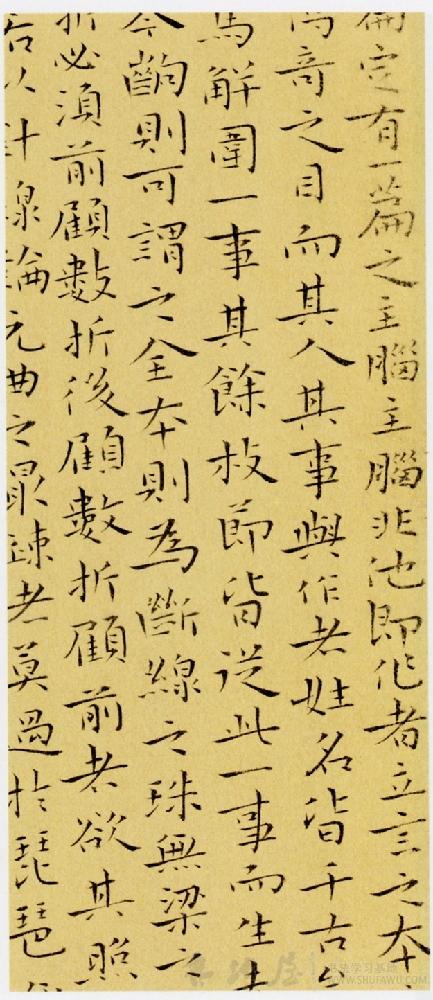 定有一篇之主腦主腦非他即作者立言之本
奇之目而其人其事與作者姓名皆千古
馬解圍一事其餘枝節皆從此一事而生
齣則可謂之全本則為斷線之珠無梁之
折必須前顧數折後顧數折顧前者欲其照
若以針線論元曲之最疎者莫過於琵琶
書法学习基地
WWW.SHUFAWU.COM